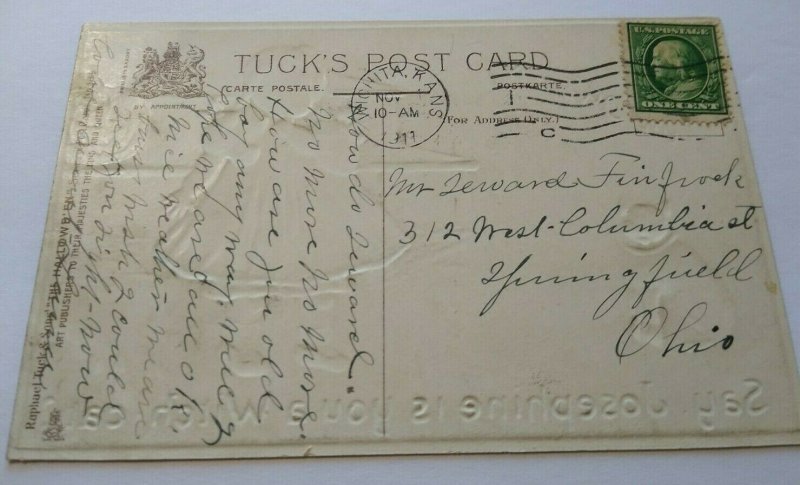 TUCK'S POST CARD
CARTE POSTALE.
POSTKARTE.
BY APPOINTMENT
(FOR ADDRESS ONLY.)
WICHITA, KANS
NOV
10-AM
1911
U.S. POSTAGE
ONE CENT
Howdo Seward.
No More No More.
How are you old
boy any way. Well I
are all O.K.
nice weather
I could
see you right now
Mr Seward Finfrock
312 West Columbia st
Springfield
Ohio
Raphael Tuck & Sons' "HALLOWE'EN"
ART PUBLISHERS TO THEIR MAJESTIES THE KING AND QUEEN
Say Josephine is you a Witch